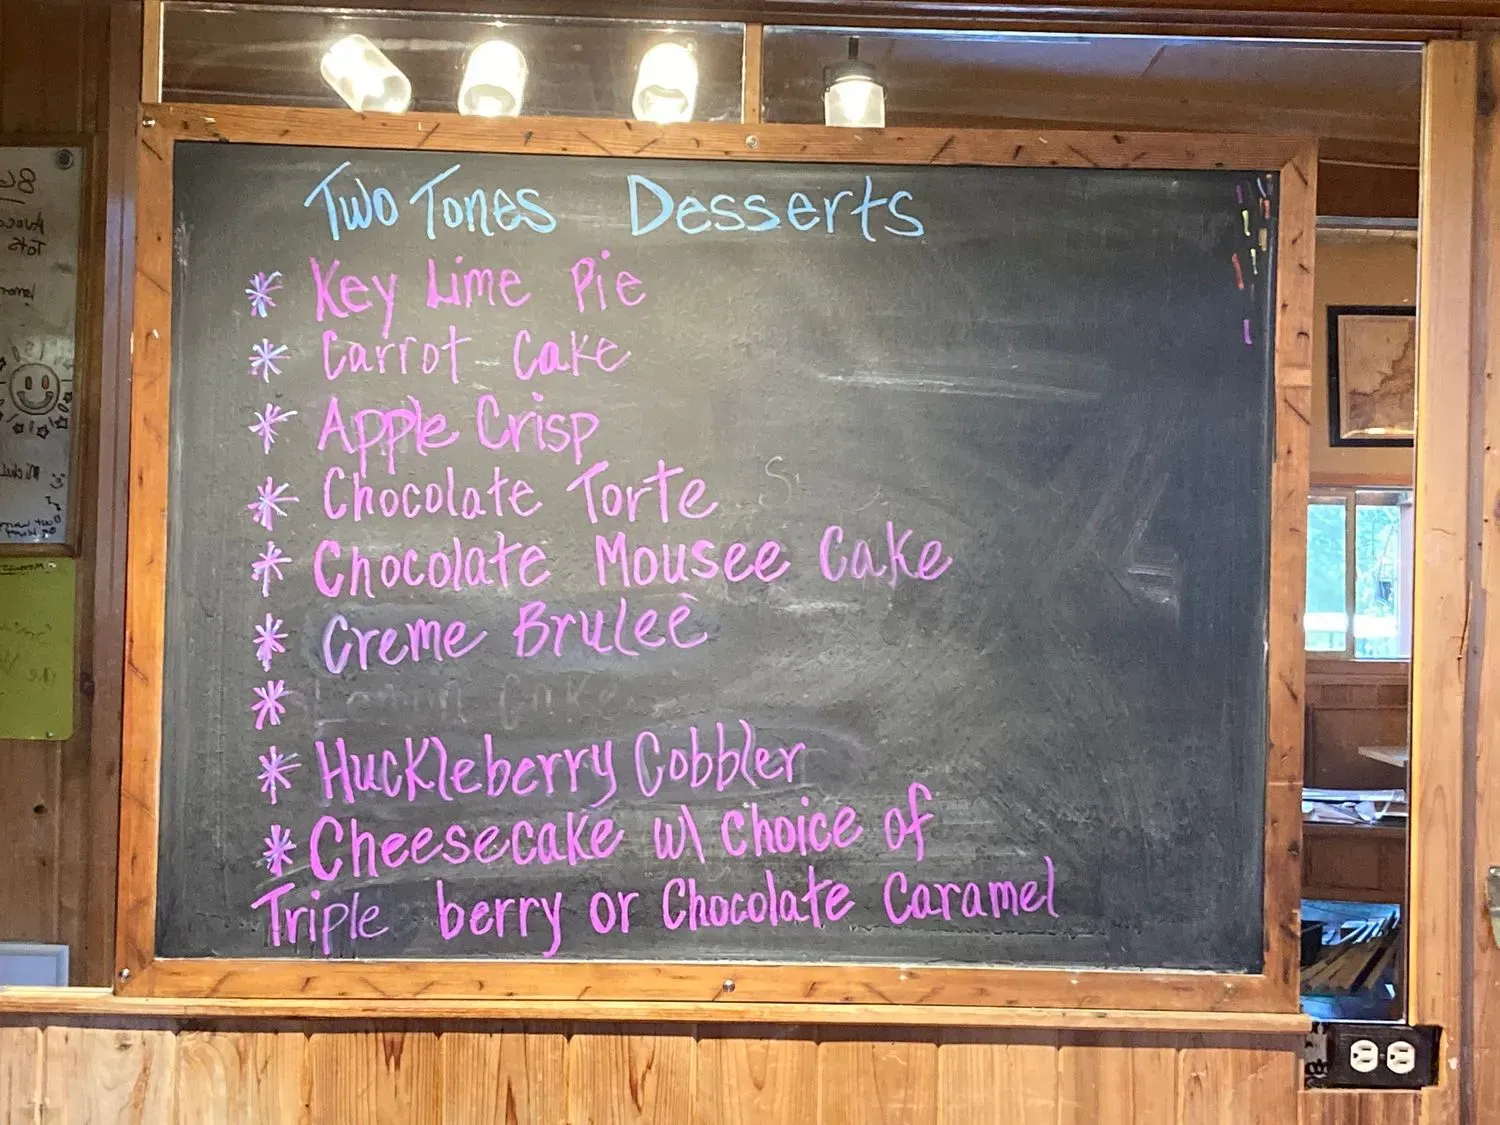 Two Tones Desserts
* Key Lime Pie
* Carrot Cake
* Apple Crisp
* Chocolate Torte
* Chocolate Mousee Cake
* Creme Bruleè
* Cake
* Huckleberry Cobbler
* Cheesecake w\ choice of
Triple berry or Chocolate Caramel